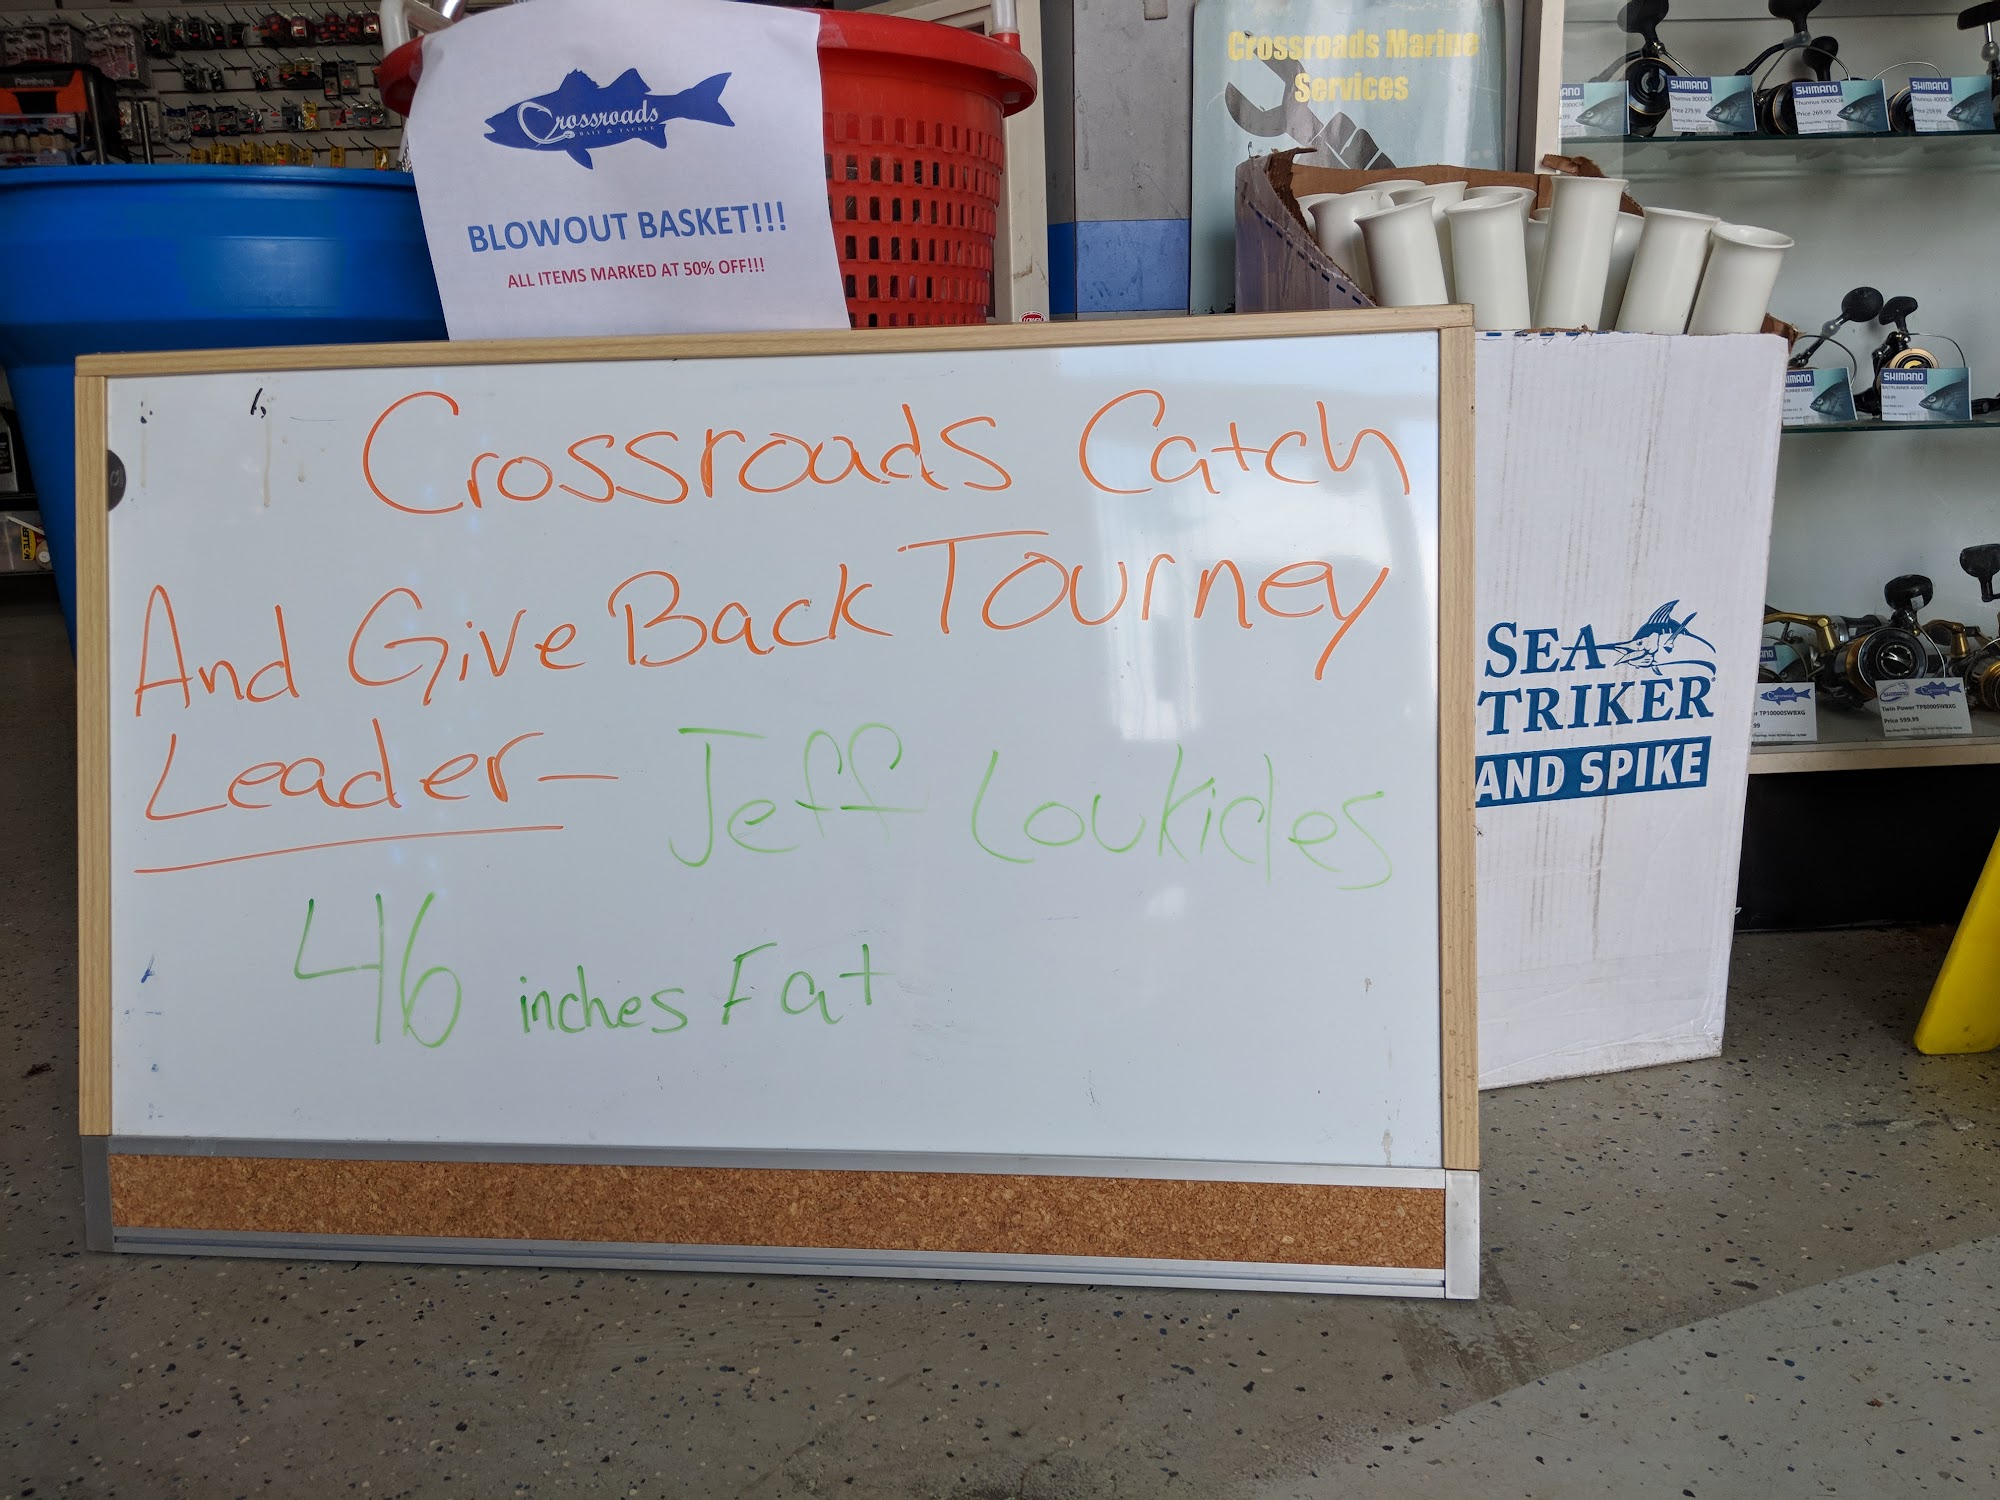 Crossroads
BAIT & TACKLE
BLOWOUT BASKET!!!
ALL ITEMS MARKED AT 50% OFF!!!
Crossroads Marine
Services
SHIMANO
Thunnus 8000CI4
Price 279.99
SHIMANO
Thunnus 6000CI4
Price 269.99
SHIMANO
Thunnus 4000CI4
Price 259.99
Crossroads Catch
And Give Back Tourney
Leader-
Jeff Loukides
46 inches Fat
SEA
TRIKER
AND SPIKE
SHIMANO
SHIMANO
Twin Power TP8000SWBXG
Price 599.99
TP10000SWBXG
Plano